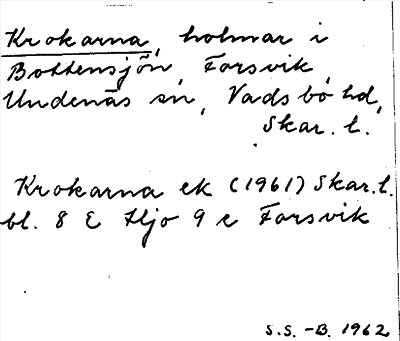 Krokarna, holmar i
Bottensjön, Forsvik,
Undenäs sn, Vadsbo hd,
Skar. l.
Krokarna ek (1961) Skar. l.
bl. 8 E Hjo 9 e Forsvik
S.S. -B. 1962